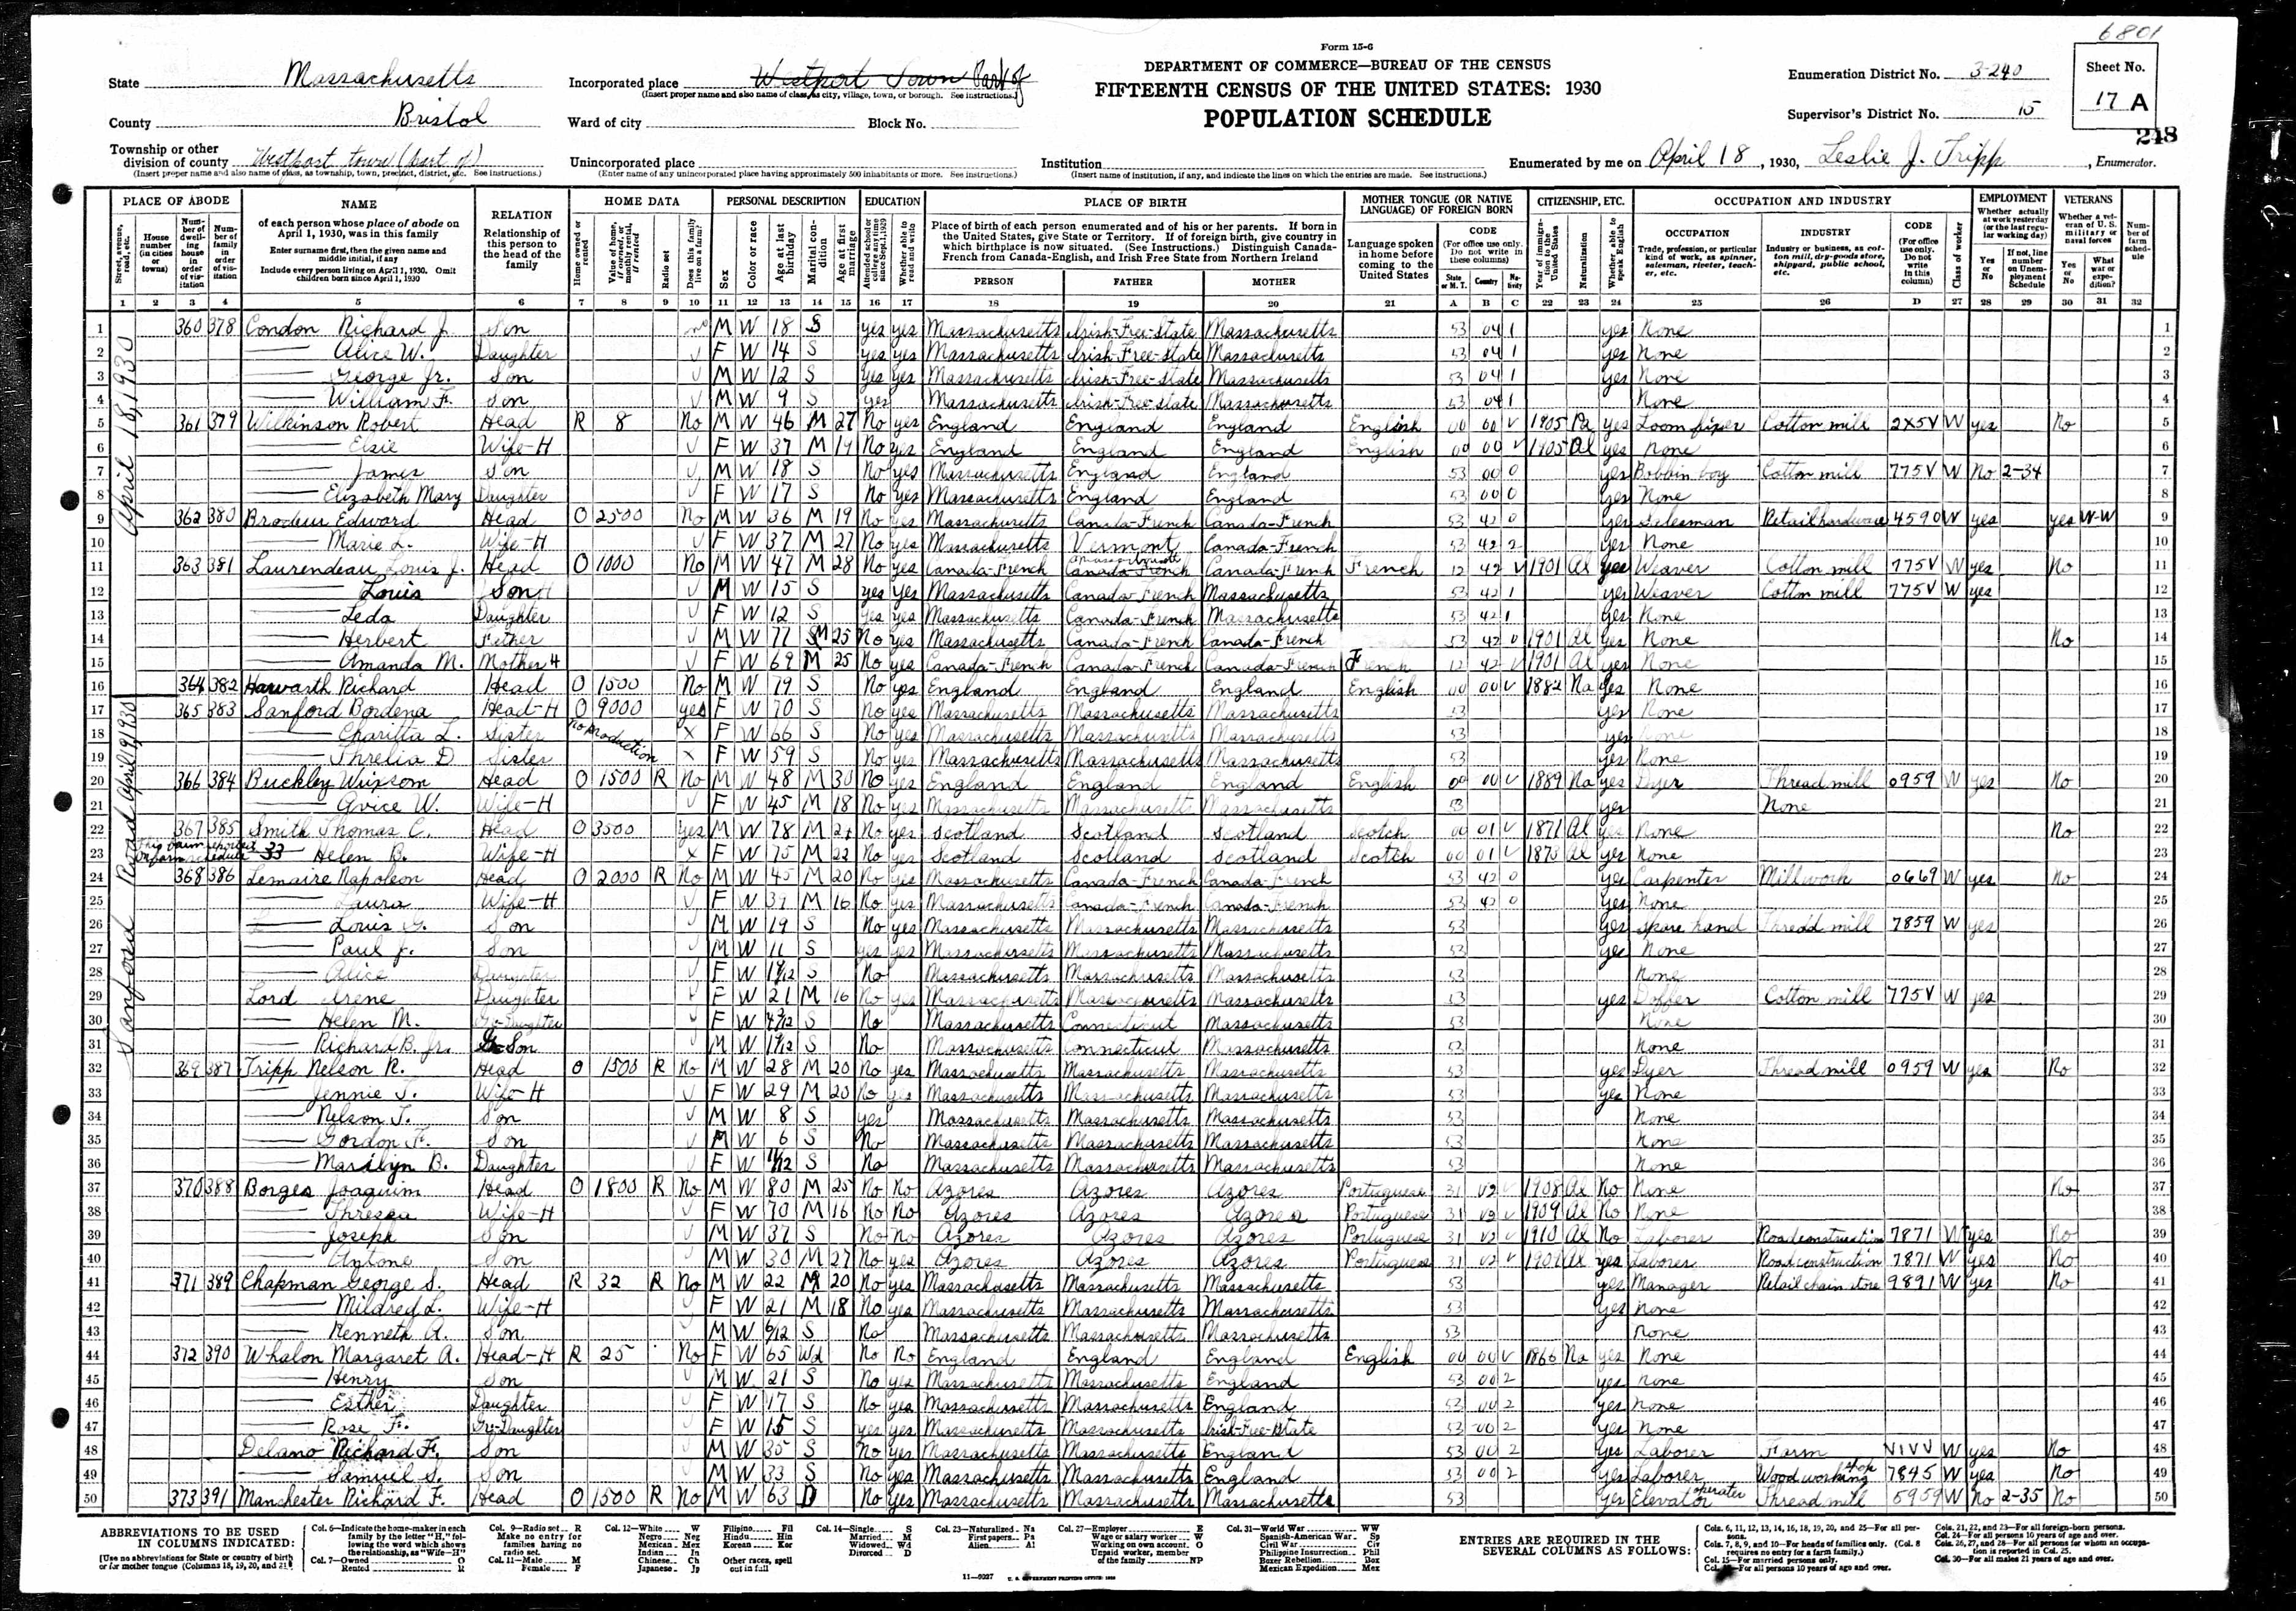 6801
Form 15-6
DEPARTMENT OF COMMERCE—BUREAU OF THE CENSUS
FIFTEENTH CENSUS OF THE UNITED STATES: 1930
POPULATION SCHEDULE
State Massachusetts
County Bristol
Township or other division of county Westport town (part of)
(Insert proper name and also name of class, as township, town, precinct, district, etc. See instructions.)
Incorporated place Westport Town Part of
(Insert proper name and also name of class, as city, village, town, or borough. See instructions.)
Ward of city Block No.
Unincorporated place
(Enter name of any unincorporated place having approximately 500 inhabitants or more. See instructions.)
Institution
(Insert name of institution, if any, and indicate the lines on which the entries are made. See instructions.)
Enumeration District No. 3-240
Supervisor's District No. 15
Sheet No. 17 A
248
Enumerated by me on April 18, 1930, Leslie J. Tripp, Enumerator.
PLACE OF ABODE NAME RELATION HOME DATA PERSONAL DESCRIPTION EDUCATION PLACE OF BIRTH MOTHER TONGUE (OR NATIVE LANGUAGE) OF FOREIGN BORN CITIZENSHIP, ETC. OCCUPATION AND INDUSTRY EMPLOYMENT VETERANS
April 18, 1930
Sanford Road April 19, 1930
1 360 378 Condon Richard J. Son no M W 18 S yes yes Massachusetts Irish-Free-State Massachusetts 53 04 1 yes None 1
2 Alice W. Daughter F W 14 S yes yes Massachusetts Irish-Free-State Massachusetts 53 04 1 yes None 2
3 George Jr. Son M W 12 S yes yes Massachusetts Irish-Free-State Massachusetts 53 04 1 yes None 3
4 William F. Son M W 9 S yes Massachusetts Irish-Free-State Massachusetts 53 04 1 None 4
5 361 379 Wilkinson Robert Head R 8 No M W 46 M 27 No yes England England England English 00 00 V 1905 Pa yes Loom fixer Cotton mill 2X5V W yes No 5
6 Elsie Wife-H F W 37 M 19 No yes England England England English 00 00 V 1905 Al yes None 6
7 James Son M W 18 S No yes Massachusetts England England 53 00 0 yes Bobbin boy Cotton mill 775V W No 2-34 7
8 Elizabeth Mary Daughter F W 17 S No yes Massachusetts England England 53 00 0 yes None 8
9 362 380 Brodeur Edward Head O 2500 No M W 36 M 19 No yes Massachusetts Canada-French Canada-French 53 42 0 yes Salesman Retail hardware 4590 W yes yes W-W 9
10 Marie L. Wife-H F W 37 M 27 No yes Massachusetts Vermont Canada-French 53 42 2 yes None 10
11 363 381 Laurendeau Louis J. Head O 1000 No M W 47 M 28 No yes Canada-French Massachusetts Canada-French Canada-French French 12 42 V 1901 Al yes Weaver Cotton mill 775V W yes No 11
12 Louis Son M W 15 S yes yes Massachusetts Canada French Massachusetts 53 42 1 yes Weaver Cotton mill 775V W yes 12
13 Leda Daughter F W 12 S yes yes Massachusetts Canada-French Massachusetts 53 42 1 yes None 13
14 Herbert Father M W 77 M 25 No yes Massachusetts Canada-French Canada-French 53 42 0 1901 Al yes None No 14
15 Amanda M. Mother H F W 69 M 25 No yes Canada-French Canada-French Canada-French French 12 42 V 1901 Al yes None 15
16 364 382 Harwarth Richard Head O 1500 No M W 79 S No yes England England England English 00 00 V 1882 Na yes None 16
17 365 383 Sanford Bordena Head-H O 9000 yes F W 70 S No yes Massachusetts Massachusetts Massachusetts 53 yes None 17
18 Charitta L. Sister No production X F W 66 S No yes Massachusetts Massachusetts Massachusetts 53 yes None 18
19 Threlia D Sister X F W 59 S No yes Massachusetts Massachusetts Massachusetts 53 yes None 19
20 366 384 Buckley Wixsom Head O 1500 R No M W 48 M 30 No yes England England England English 00 00 V 1889 Na yes Dyer Thread mill 0959 W yes No 20
21 Avice W. Wife-H F W 45 M 18 No yes Massachusetts Massachusetts Massachusetts 53 yes None 21
22 367 385 Smith Thomas C. Head O 3500 Yes M W 78 M No yes Scotland Scotland Scotland Scotch 00 01 V 1871 Al yes None No 22
23 This farm reported on farm schedule 33 Helen B. Wife-H X F W 75 M 22 No yes Scotland Scotland Scotland Scotch 00 01 V 1873 Al yes None 23
24 368 386 Lemaire Napoleon Head O 2000 R No M W 45 M 20 No yes Massachusetts Canada-French Canada-French 53 42 0 yes Carpenter Millwork 0669 W yes No 24
25 Laura Wife-H F W 37 M 16 No yes Massachusetts Canada-French Canada-French 53 42 0 yes None 25
26 Louis G. Son M W 19 S No yes Massachusetts Massachusetts Massachusetts 53 yes Spare hand Thread mill 7859 W yes 26
27 Paul J. Son M W 11 S yes yes Massachusetts Massachusetts Massachusetts 53 yes None 27
28 Alice Daughter F W S No Massachusetts Massachusetts Massachusetts 53 None 28
29 Lord Irene Daughter F W 21 M 16 No yes Massachusetts Massachusetts Massachusetts 53 yes Doffer Cotton mill 775V W yes 29
30 Helen M. Gr-Daughter F W S No Massachusetts Connecticut Massachusetts 53 None 30
31 Richard B. Jr. G-Son M W S No Massachusetts Connecticut Massachusetts 53 None 31
32 369 387 Tripp Nelson R. Head O 1500 R No M W 28 M 20 No yes Massachusetts Massachusetts Massachusetts 53 yes Dyer Thread mill 0959 W yes No 32
33 Jennie T. Wife-H F W 29 M 20 No yes Massachusetts Massachusetts Massachusetts 53 yes None 33
34 Nelson T. Son M W 8 S yes Massachusetts Massachusetts Massachusetts 53 None 34
35 Gordon F. Son M W 6 S No Massachusetts Massachusetts Massachusetts 53 None 35
36 Marilyn B. Daughter F W S No Massachusetts Massachusetts Massachusetts 53 None 36
37 370 388 Borges Joaquim Head O 1800 R No M W 80 M 25 No No Azores Azores Azores Portuguese 31 V2 V 1908 Al No None No 37
38 Thresea Wife-H F W 70 M 16 No No Azores Azores Azores Portuguese 31 V2 V 1909 Al No None 38
39 Joseph Son M W 37 S No No Azores Azores Azores Portuguese 31 V2 V 1910 Al No Laborer Road construction 7871 W yes No 39
40 Antone Son M W 30 M 27 No yes Azores Azores Azores Portuguese 31 V2 V Al yes Laborer Road construction 7871 W yes No 40
41 371 389 Chapman George S. Head R 32 R No M W 22 M 20 No yes Massachusetts Massachusetts Massachusetts 53 yes Manager Retail chain store 9891 W yes No 41
42 Mildred L. Wife-H F W 21 M 18 No yes Massachusetts Massachusetts Massachusetts 53 yes None 42
43 Kenneth A. Son M W 6/12 S No Massachusetts Massachusetts Massachusetts 53 None 43
44 372 390 Whalon Margaret A. Head-H R 25 No F W 65 Wd No No England England England English 00 00 V 1866 Na yes None 44
45 Henry Son M W 21 S No yes Massachusetts Massachusetts England 53 00 2 yes None 45
46 Esther Daughter F W 17 S No yes Massachusetts Massachusetts England 53 00 2 yes None 46
47 Rose F. Gr-Daughter F W 15 S yes yes Massachusetts Massachusetts Irish-Free-State 53 00 2 yes None 47
48 Delano Richard F. Son M W 35 S No yes Massachusetts Massachusetts England 53 00 2 yes Laborer Farm VIVV W yes No 48
49 Samuel S. Son M W 33 S No yes Massachusetts Massachusetts England 53 00 2 yes Laborer Wood working shop 7845 W yes No 49
50 373 391 Manchester Richard F. Head O 1500 R No M W 63 D No yes Massachusetts Massachusetts Massachusetts 53 yes Elevator operator Thread mill 5959 W No 2-35 No 50
ABBREVIATIONS TO BE USED IN COLUMNS INDICATED:
[Use no abbreviations for State or country of birth or for mother tongue (Columns 18, 19, 20, and 21)]
Col. 6—Indicate the home-maker in each family by the letter "H," following the word which shows the relationship, as "Wife—H"
Col. 7—Owned O Rented R
Col. 9—Radio set R Make no entry for families having no radio set.
Col. 11—Male M Female F
Col. 12—White W Negro Neg Mexican Mex Indian In Chinese Ch Japanese Jp Filipino Fil Hindu Hin Korean Kor Other races, spell out in full
Col. 14—Single S Married M Widowed Wd Divorced D
Col. 23—Naturalized Na First papers Pa Alien Al
Col. 27—Employer E Wage or salary worker W Working on own account O Unpaid worker, member of the family NP
Col. 31—World War WW Spanish-American War Sp Civil War Civ Philippine Insurrection Phil Boxer Rebellion Box Mexican Expedition Mex
ENTRIES ARE REQUIRED IN THE SEVERAL COLUMNS AS FOLLOWS:
Cols. 6, 11, 12, 13, 14, 16, 18, 19, 20, and 25—For all persons.
Cols. 7, 8, 9, and 10—For heads of families only. (Col. 8 requires no entry for a farm family.)
Col. 15—For married persons only.
Col. 17—For all persons 10 years of age and over.
Cols. 21, 22, and 23—For all foreign-born persons.
Col. 24—For all persons 10 years of age and over.
Cols. 26, 27, and 28—For all persons for whom an occupation is reported in Col. 25.
Col. 30—For all males 21 years of age and over.
11—9027 U. S. GOVERNMENT PRINTING OFFICE: 1930